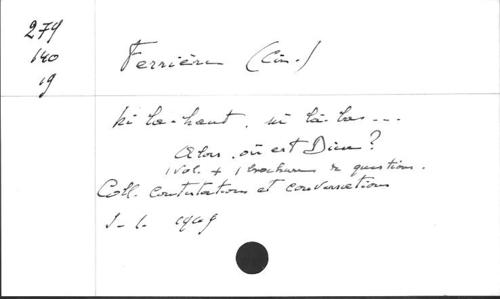 279
140
19
Ferrière (Cin.)
Ni là-haut, ni là-bas...
Alors, où est Dieu?
1 vol. + 1 brochure de questions.
Coll. contestations et conversations
S. l. 1969